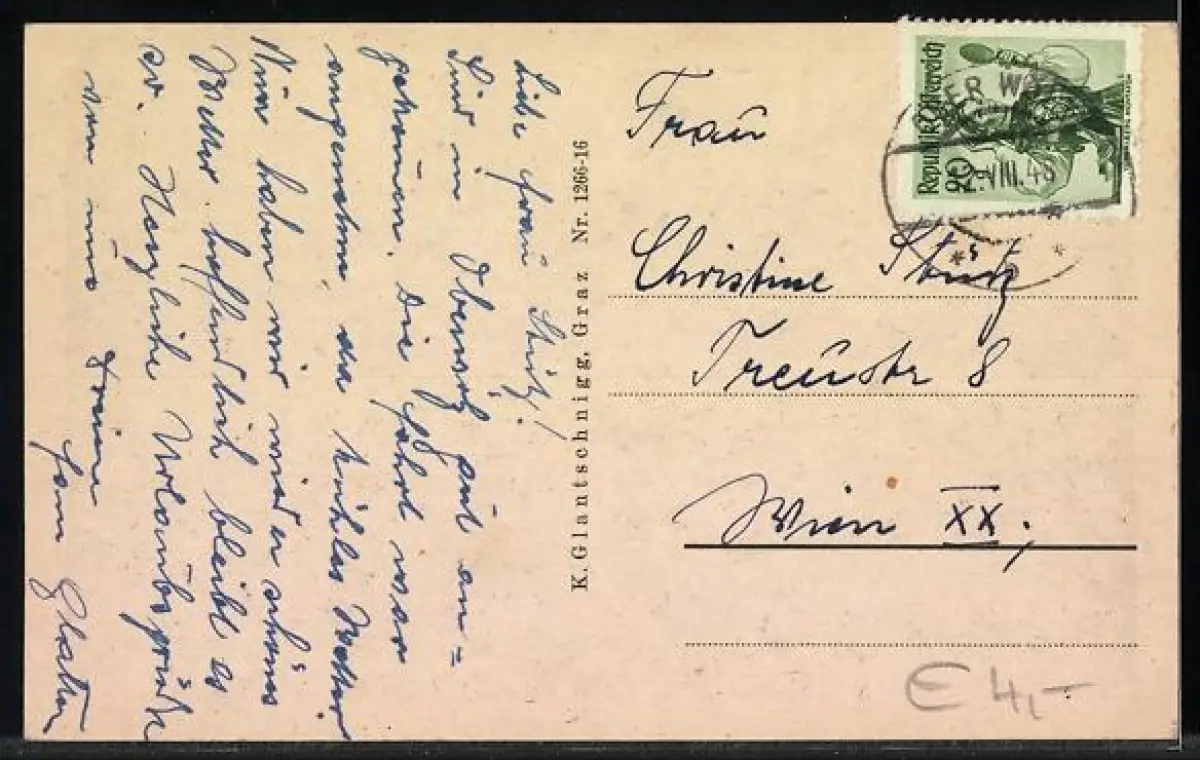 Liebe Frau Stütz!
Sind in Oberwölz gut an=
gekommen. Die Fahrt war
angenehm, da kühles Wetter
Nun haben wir wieder schönes
Wetter, hoffendlich bleibt es
so. Herzliche Urlaubsgrüße
von uns
Fam
K. Glantschnigg, Graz Nr. 1266-16
Frau
Christine Stütz
Treustr 8
Wien XX,
Republik Österreich
20
VIII. 48
E 4,-